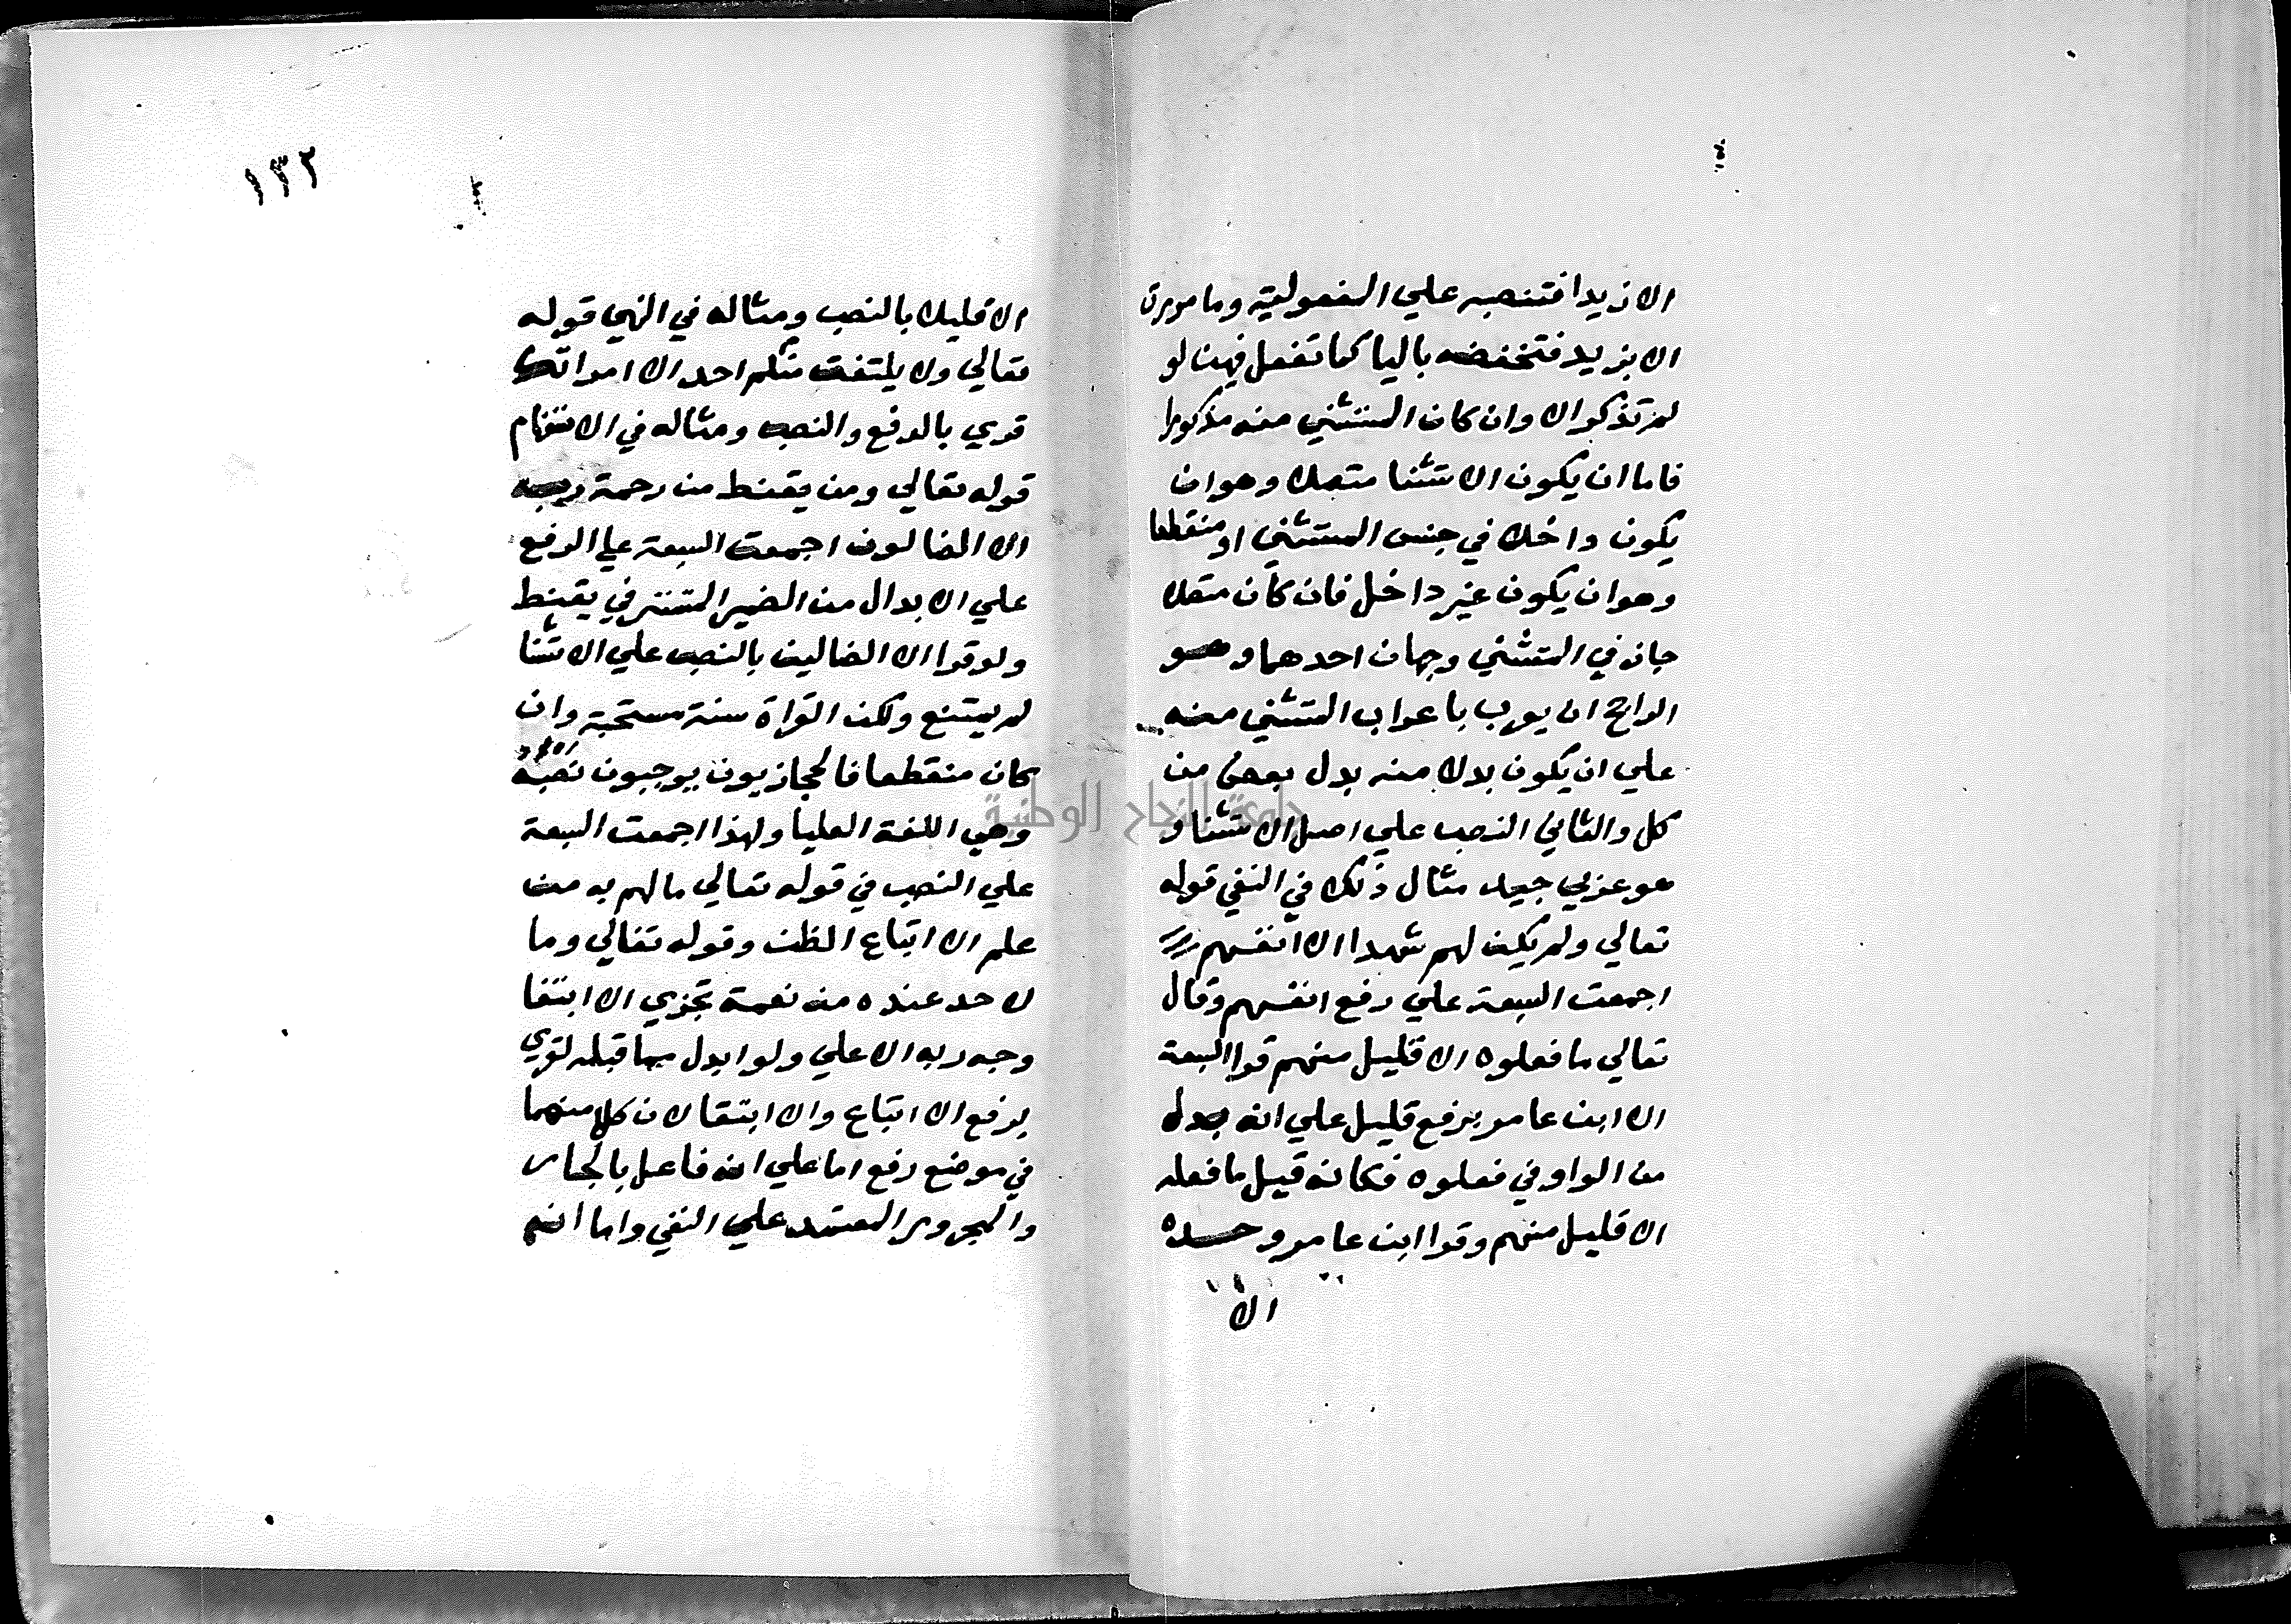 الا زيدا فتنصبه علي المفعولية وما مررت
الا بزيد فتخفضه بالبا كما تفعل فيهن لو
لم تذكر الا وان كان المستثني منه مذكورا
فاما ان يكون الاستثنا متصلا وهو ان
يكون داخلا في جنس المستثني او منقطعا
وهو ان يكون غير داخل فان كان متصلا
جاز في المستثني وجهان احدهما وهو
الراجح ان يعرب باعراب المستثني منه
علي ان يكون بدلا منه بدل بعض من
كل والثاني النصب علي اصل الاستثنا و
هو عربي جيد مثال ذلك في النفي قوله
تعالي ولم يكن لهم شهدا الا انفسهم
اجمعت السبعة علي رفع انفسهم وقال
تعالي ما فعلوه الا قليل منهم قرا السبعة
الا ابن عامر برفع قليل علي انه بدل
من الواو في فعلوه فكانه قيل ما فعله
الا قليل منهم وقرا ابن عامر وحده
الا
١٣٢
الا قليلا بالنصب ومثاله في النهي قوله
تعالي ولا يلتفت منكم احد الا امراتك
قري بالرفع والنصب ومثاله في الاستفهام
قوله تعالي ومن يقنط من رحمة ربه
الا الضالون اجمعت السبعة علي الرفع
علي الابدال من الضمير المستتر في يقنط
ولو قرا الا الضالين بالنصب علي الاستثنا
لم يمتنع ولكن القراة سنة مستحبة وان
كان منقطعا فالحجازيون يوجبون نصبه
وهي اللغة العليا ولهذا اجمعت السبعة
علي النصب في قوله تعالي ما لهم به من
علم الا اتباع الظن وقوله تعالي وما
لاحد عنده من نعمة تجزي الا ابتغا
وجه ربه الاعلي ولو ابدل مما قبله لقري
برفع الاتباع والابتغا لان كلا منهما
في موضع رفع اما علي انه فاعل بالجار
والمجرور المعتمد علي النفي واما انه
جامعة النجاح الوطنية